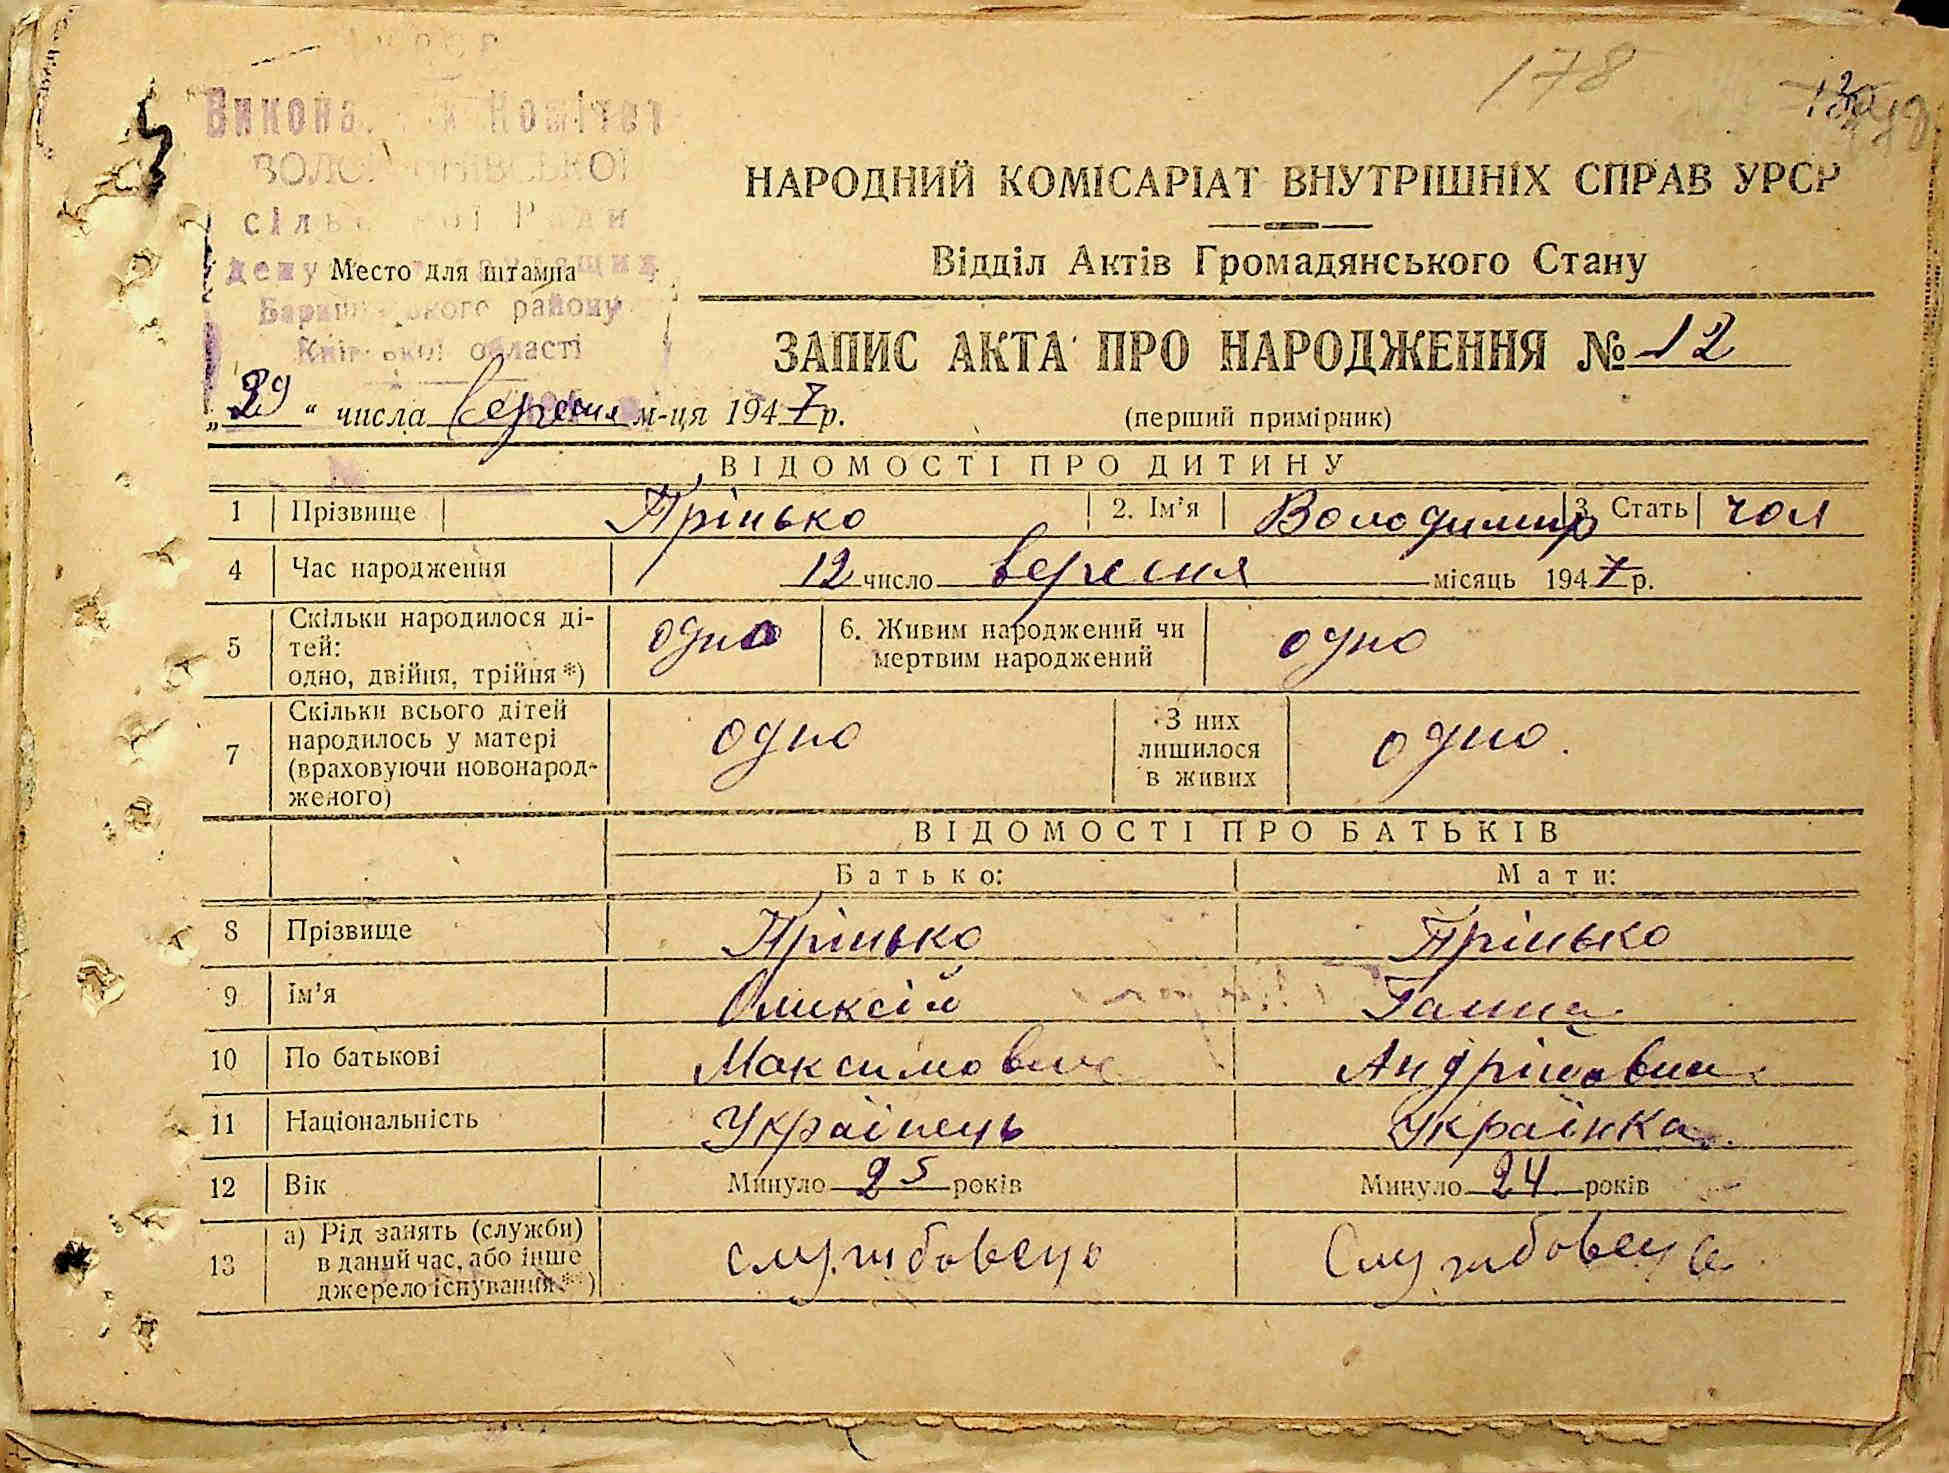 178
НАРОДНИЙ КОМІСАРІАТ ВНУТРІШНІХ СПРАВ УРСР
Відділ Актів Громадянського Стану
Комітет
сіл Ради
Место для штампа
району
області
ЗАПИС АКТА ПРО НАРОДЖЕННЯ № 12
„29“ числа Вересня м-ця 1947 р.
(перший примірник)
ВІДОМОСТІ ПРО ДИТИНУ
1 Прізвище Прінько 2. Ім'я Володимир 3. Стать чол
4 Час народження 12 число вересня місяць 1947 р.
5 Скільки народилося дітей: одно, двійня, трійня *) одно 6. Живим народжений чи мертвим народжений одно
7 Скільки всього дітей народилось у матері (враховуючи новонародженого) одно З них лишилося в живих одно.
ВІДОМОСТІ ПРО БАТЬКІВ
Батько: Мати:
8 Прізвище Прінько Прінько
9 Ім'я Оликсій Ганна
10 По батькові Максимович Андріівна
11 Національність Українець Українка
12 Вік Минуло 25 років Минуло 24 років
13 а) Рід занять (служби) в даний час, або інше джерело існування **) службовець Службовец